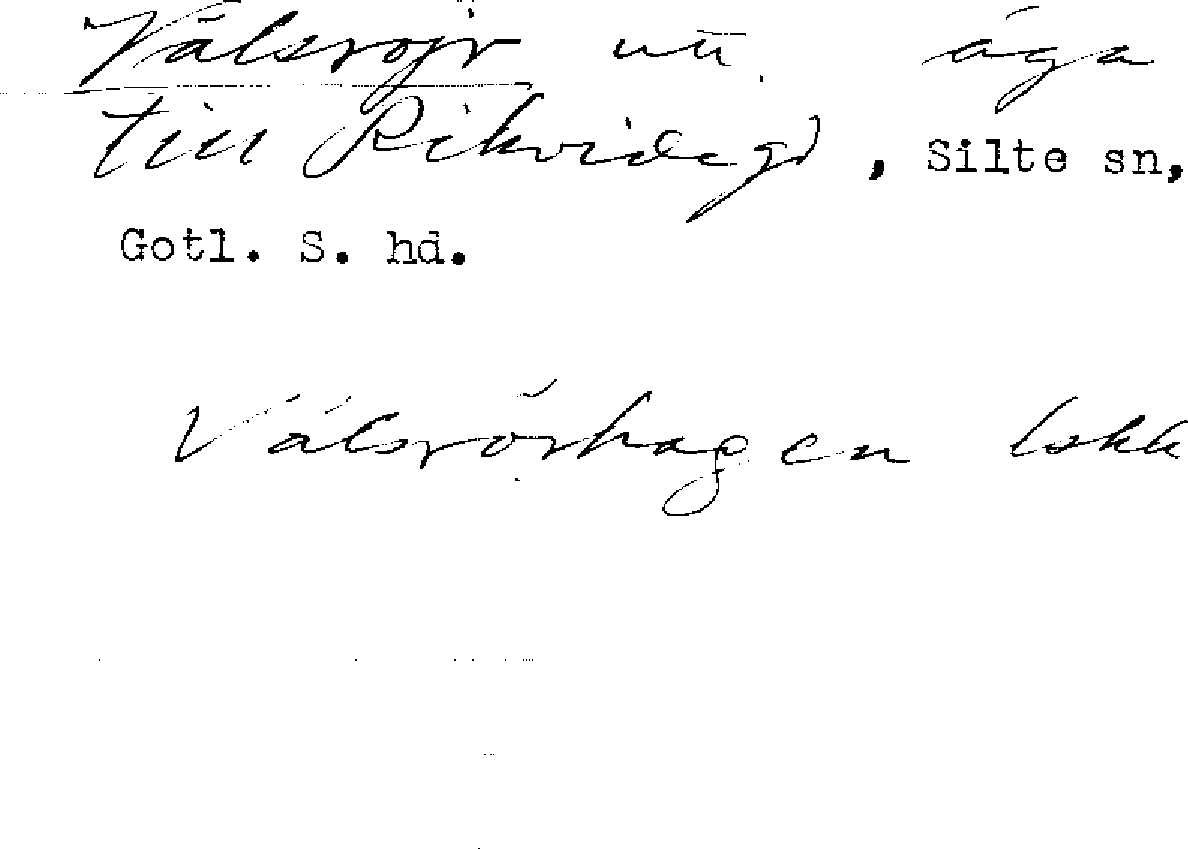 Välsrojr uti äga
till Rikvide gd, Silte sn,
Gotl. S. hd.
Välsrörhagen Lskk